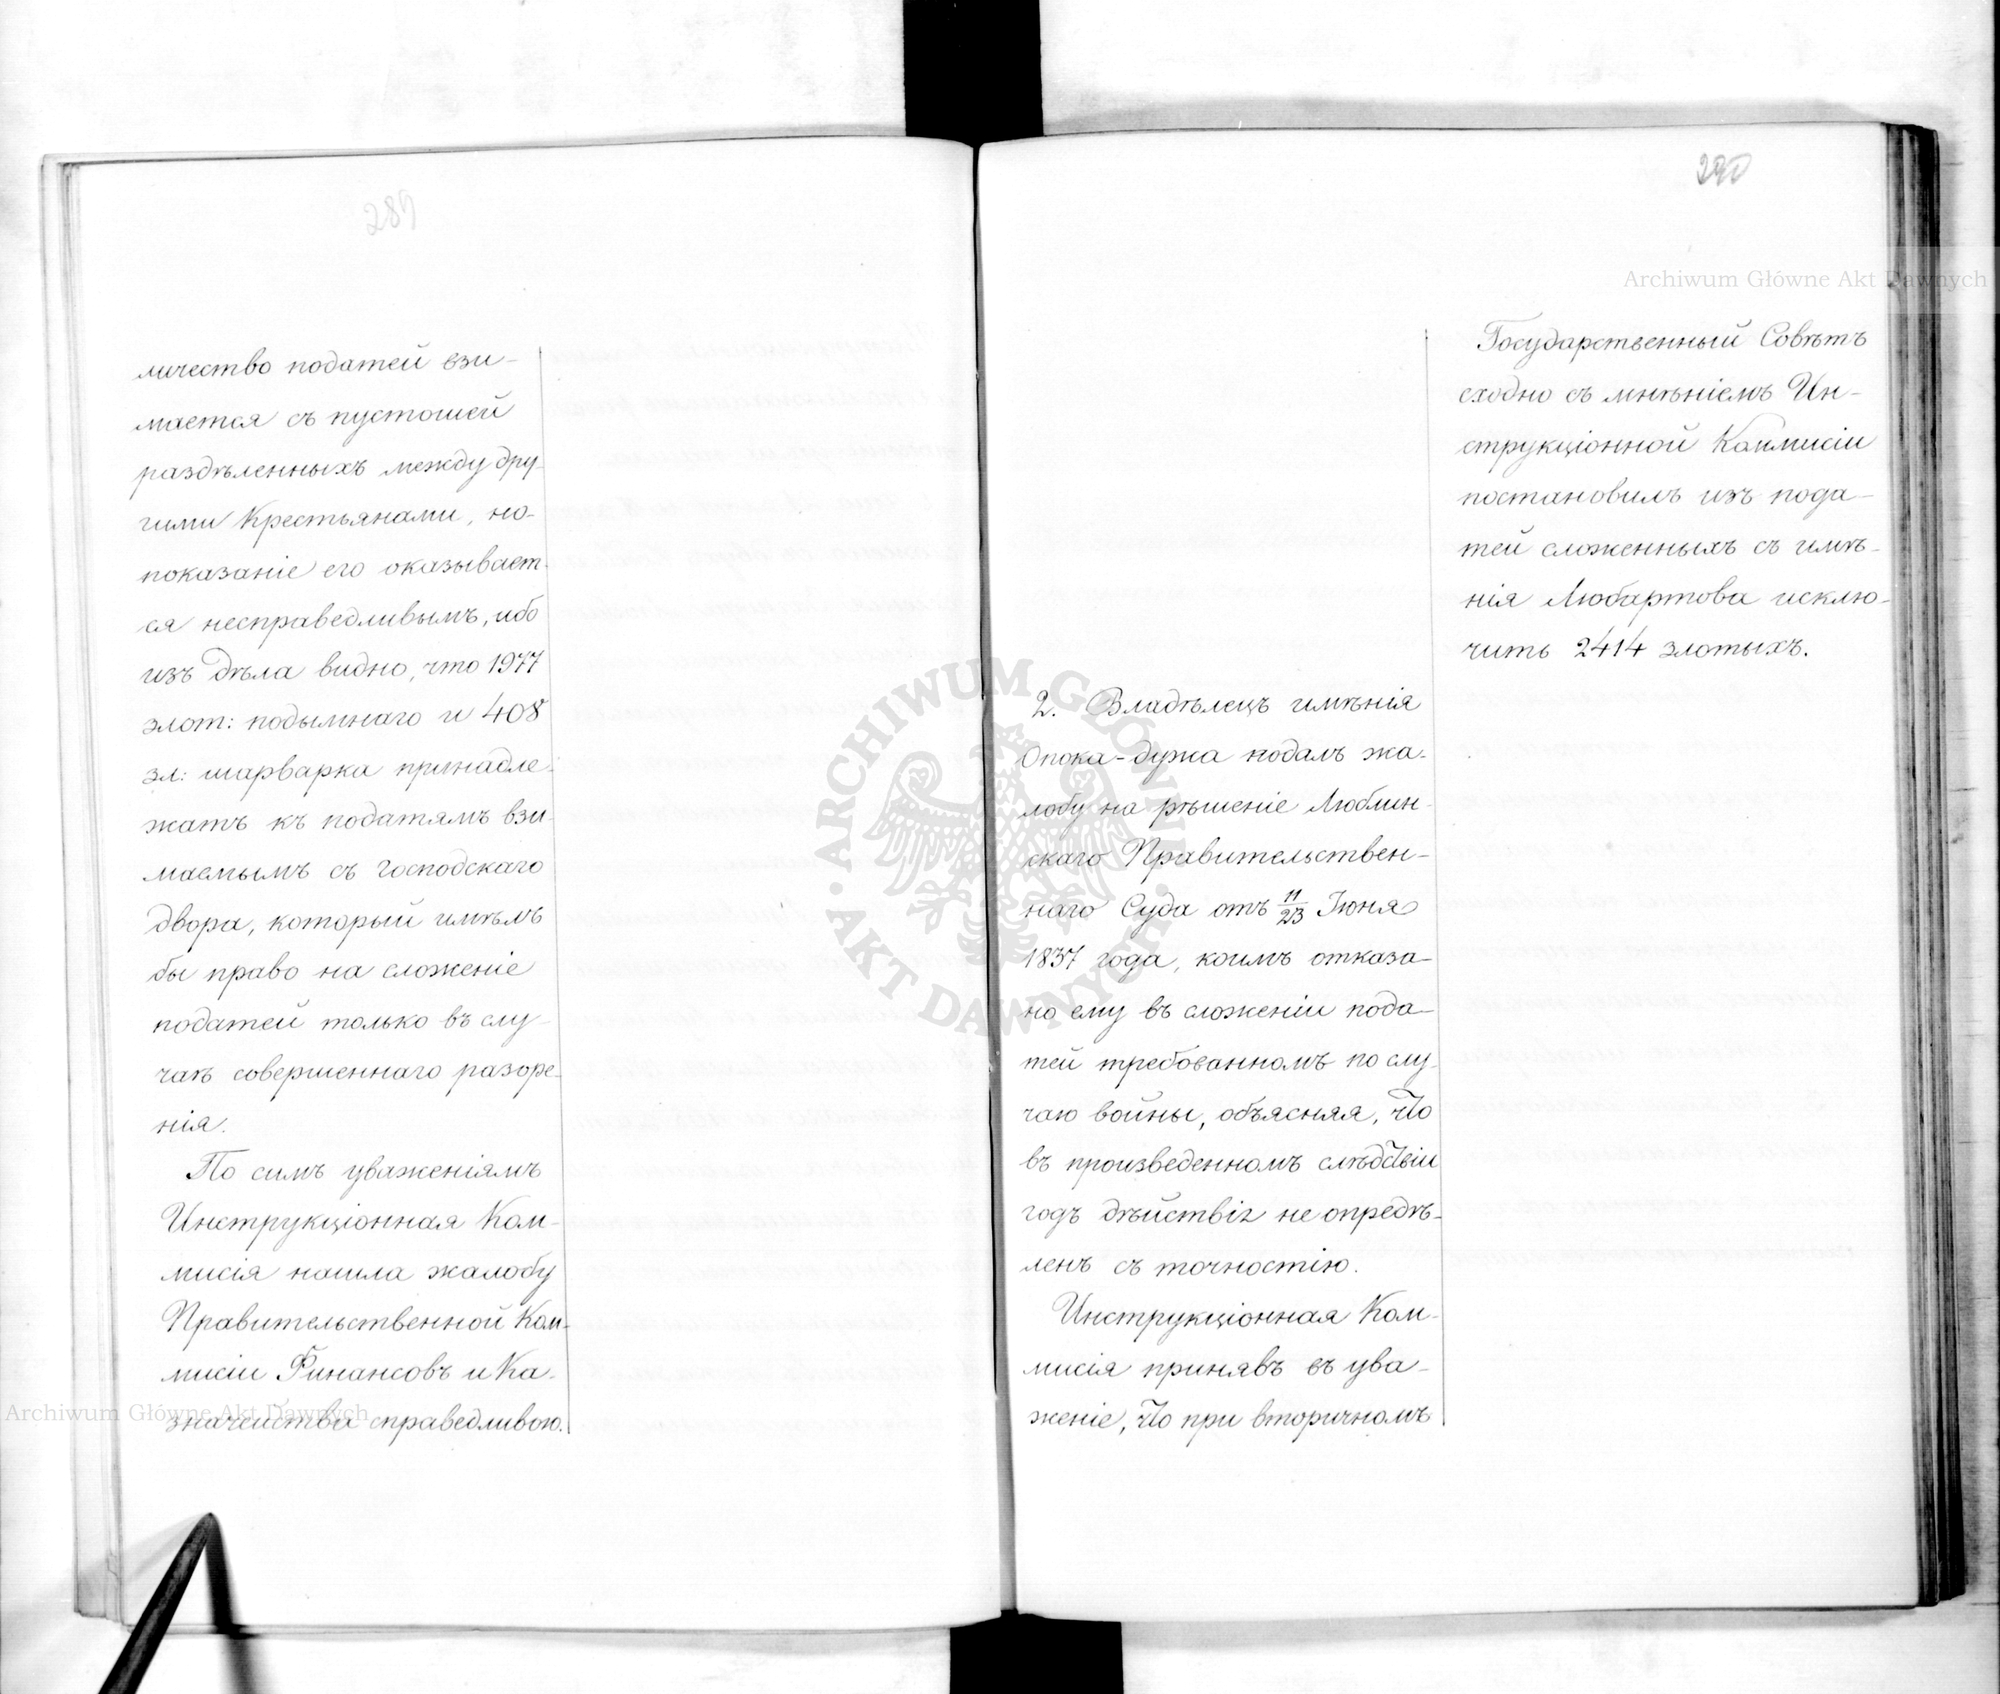 289
личество податей взи-
мается съ пустошей
раздѣленныхъ между дру-
гими Крестьянами, но-
показаніе его оказывает-
ся несправедливымъ, ибо
изъ дѣла видно, что 1977
злот: подымнаго и 408
зл: шарварка принадле-
жатъ къ податямъ взи-
маемымъ съ господскаго
двора, который имѣлъ
бы право на сложеніе
податей только въ слу-
чаѣ совершеннаго разоре-
нія.
По симъ уваженіямъ
Инструкціонная Ком-
мисія нашла жалобу
Правительственной Ком-
мисіи Финансовъ и Ка-
значейства справедливою.
290
2. Владѣлецъ имѣнія
Опока-дужа подалъ жа-
лобу на рѣшеніе Люблин-
скаго Правительствен-
наго Суда отъ 11/23 Іюня
1837 года, коимъ отказа-
но ему въ сложеніи пода-
тей требованномъ по слу-
чаю войны, объясняя, что
въ произведенномъ слѣдствіи
годъ дѣйствія не опредѣ-
ленъ съ точностію.
Инструкціонная Ком-
мисія принявъ въ ува-
женіе, что при вторичномъ
Государственный Совѣтъ
сходно съ мнѣніемъ Ин-
струкціонной Коммисіи
постановилъ изъ пода-
тей сложенныхъ съ имѣ-
нія Любартова исклю-
чить 2414 злотыхъ.
Archiwum Główne Akt Dawnych
ARCHIWUM GŁÓWNE AKT DAWNYCH
Archiwum Główne Akt Dawnych